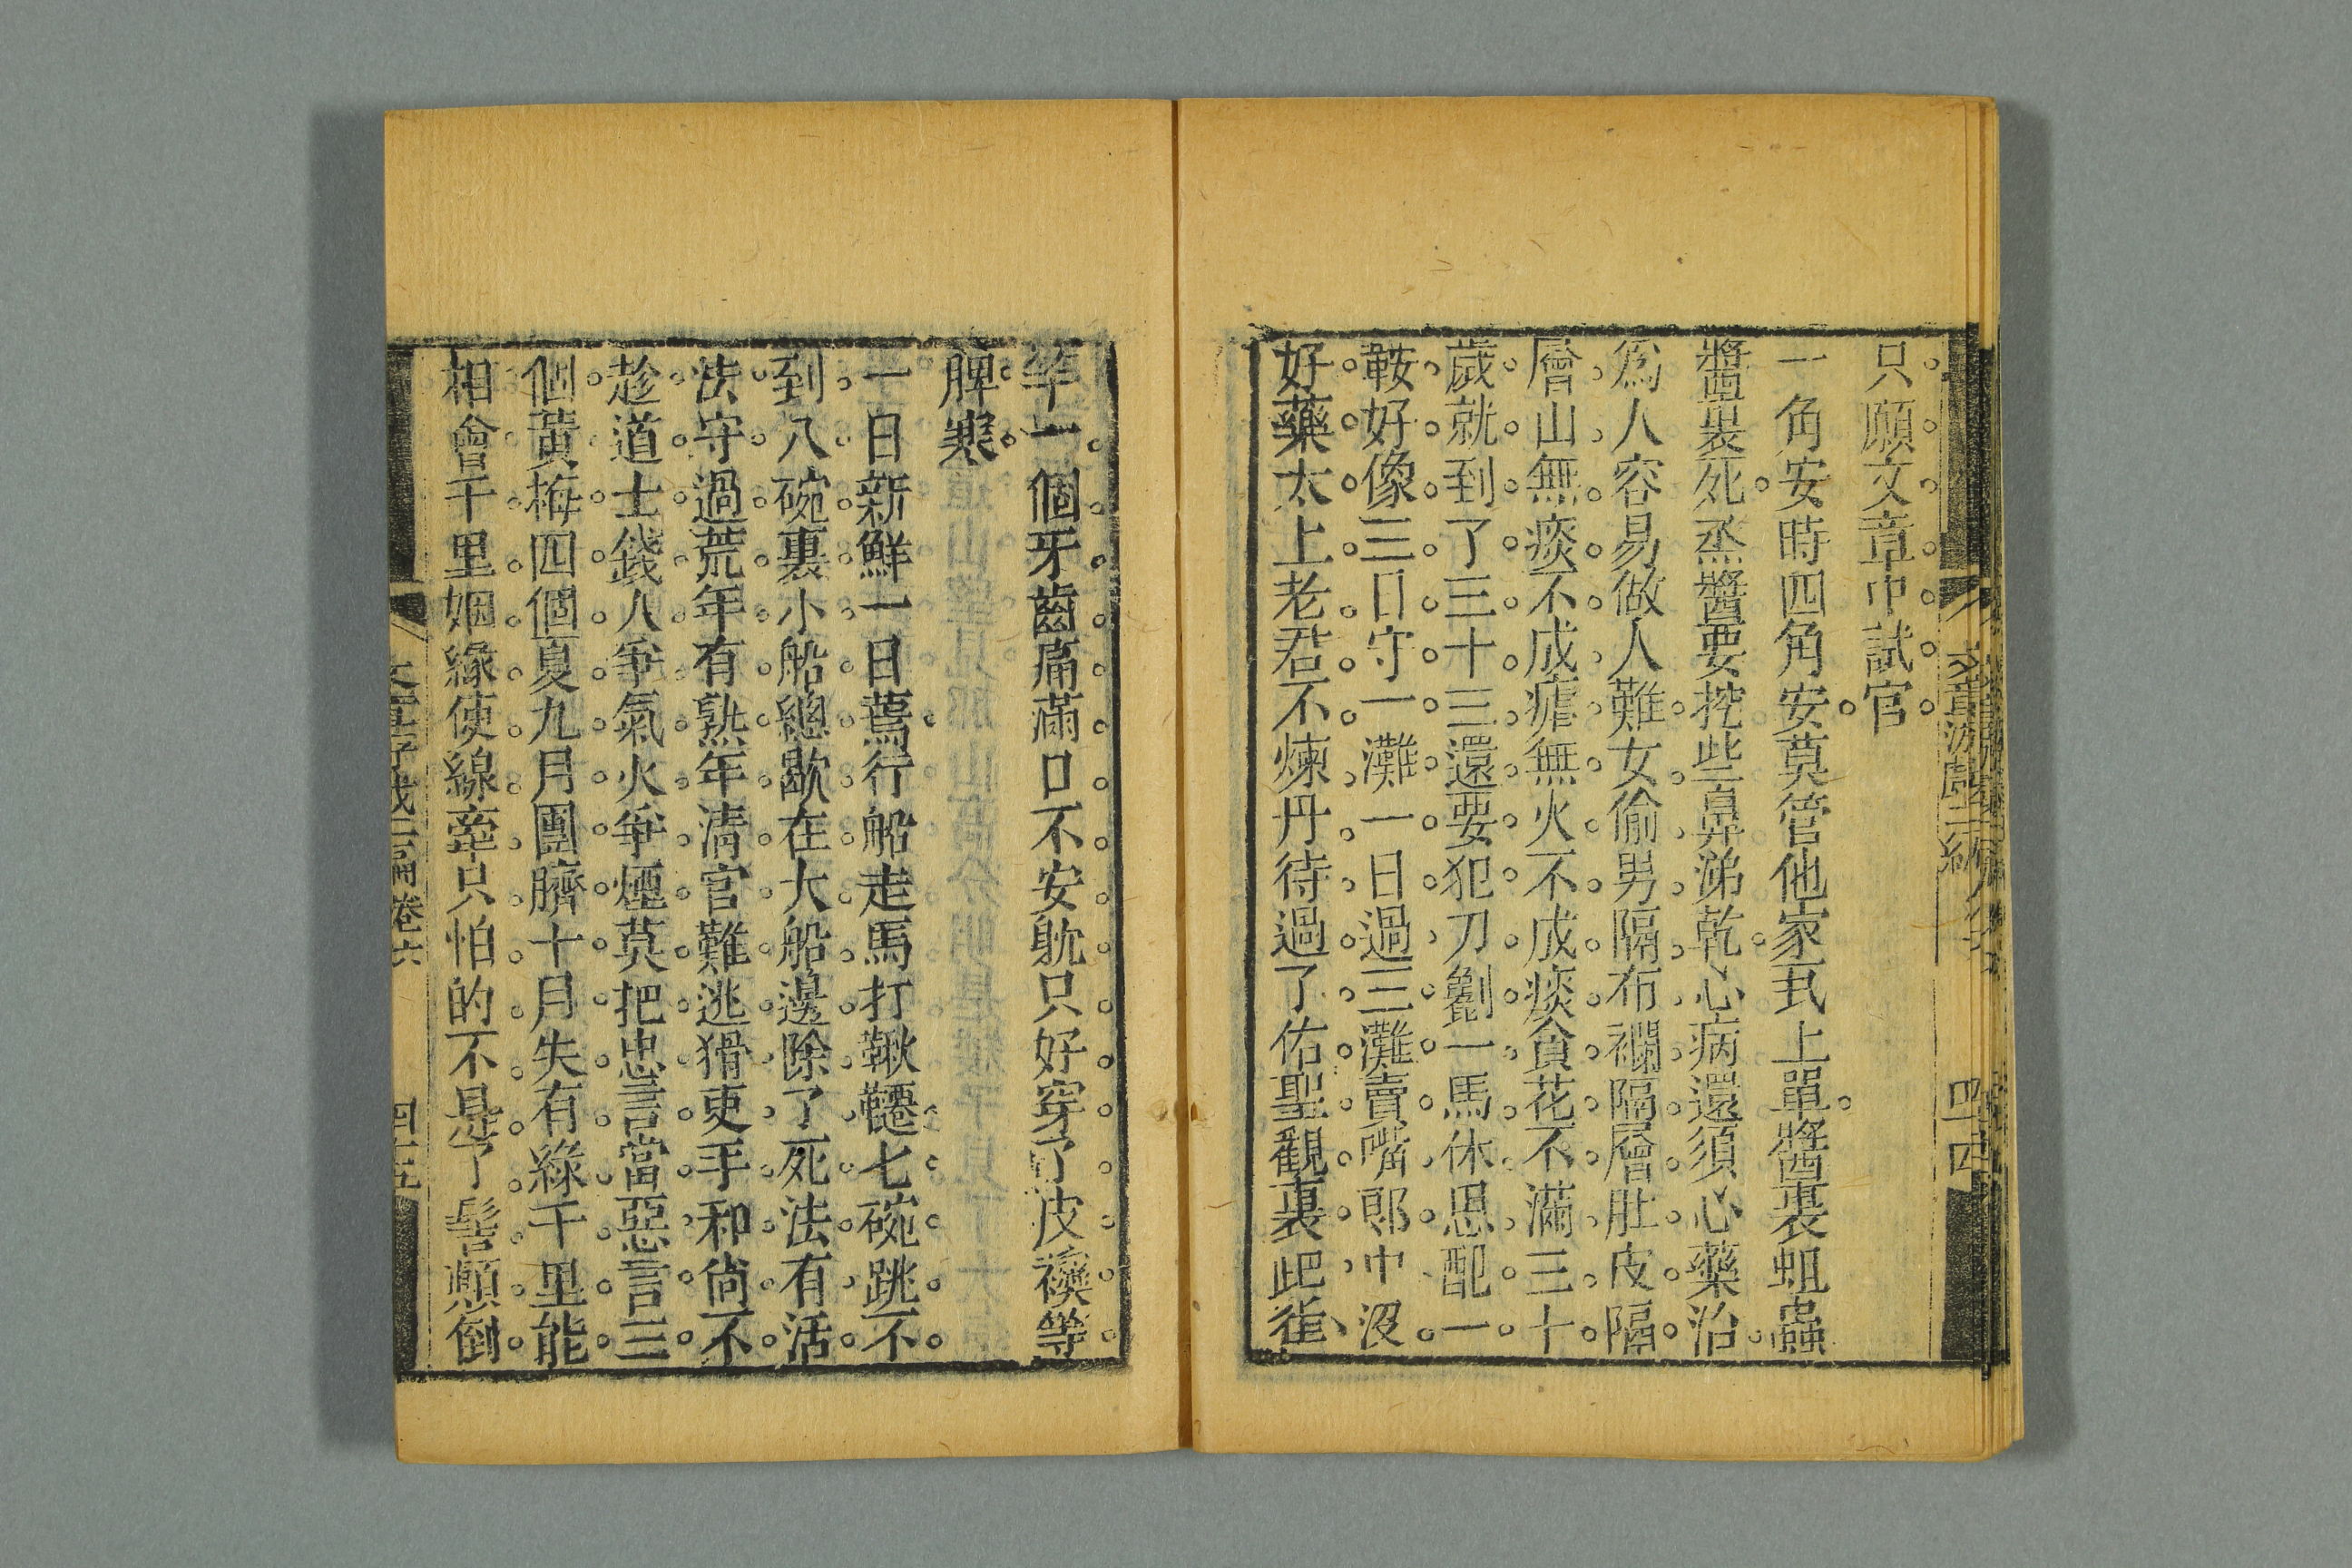 只願文章中試官
一角安時四角安莫管他家瓦上單醬裏蛆蟲
醬裏死烝醬要挖些鼻涕乾心病還須心藥治
爲人容易做人難女偷男隔布襴隔層肚皮隔
層山無痰不成瘧無火不成痰貪花不滿三十
歲就到了三十三還要犯刀劉一馬休思配一
鞍好像三日守一灘一日過三灘賣嘴郎中沒
好藥太上老君不煉丹待過了佑聖觀裏此雈
文章游戲二編
四十四
竿一個牙齒痛滿口不安躭只好穿了皮襖等
脾寒
一日新鮮一日蔫行船走馬打鞦韆七碗跳不
到八碗裏小船總歇在大船邊除了死法有活
法守過荒年有熟年清官難逃猾吏手和尙不
趁道士錢人爭氣火爭煙莫把忠言當惡言三
個黃梅四個夏九月團臍十月失有綠千里能
相會千里姻緣使線牽只怕的不是了髻顛倒
文章游戲二編卷六
四十五